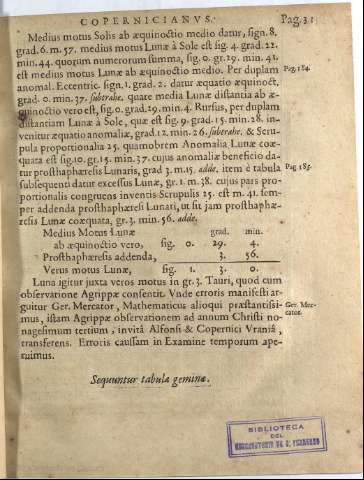 COPERNICIANVS. Pag. 31
Medius motus Solis ab æquinoctio medio datur, sign. 8.
grad. 6. m. 57. medius motus Lunæ à Sole est sig. 4. grad. 22.
min. 44. quorum numerorum summa, sig. 0. gr. 29. min. 41.
est medius motus Lunæ ab æquinoctio medio. Per duplam
Pag. 184.
anomal. Eccentric. sign. 1. grad. 2. datur æquatio æquinoct.
grad. 0. min. 37. subtrahe. quare media Lunæ distantia ab æ-
quinoctio vero est, sig. 0. grad. 29. min. 4. Rursus, per duplam
distantiam Lunæ à Sole, quæ est sig. 9. grad. 15. min. 28. in-
venitur æquatio anomaliæ, grad. 12. min. 26. subtrahe. & Scru-
pula proportionalia 25. quamobrem Anomalia Lunæ coæ-
quata est sig. 10. gr. 15. min. 37. cujus anomaliæ beneficio da-
tur prosthaphæresis Lunaris, grad 3. m. 15. adde. item è tabula
Pag. 185.
subsequenti datur excessus Lunæ, gr. 1. m. 38. cujus pars pro-
portionalis congruens inventis Scrupulis 25. est m. 41. sem-
per addenda prosthaphæresi Lunari, ut sit jam prosthaphæ-
resis Lunæ coæquata, gr. 3. min. 56. adde.
Medius Motus Lunæ grad. min.
ab æquinoctio vero, sig. 0. 29. 4.
Prosthaphæresis addenda, 3. 56.
Verus motus Lunæ, sig. 1. 3. 0.
Luna igitur juxta veros motus in gr. 3. Tauri, quod cum
observatione Agrippæ consentit. Vnde erroris manifesti ar-
guitur Ger. Mercator, Mathematicus alioqui præstantissi-
Ger. Mer-
cator.
mus, istam Agrippæ observationem ad annum Christi no-
nagesimum tertium, invitâ Alfonsi & Copernici Vraniâ,
transferens. Erroris caussam in Examine temporum ape-
ruimus.
Sequuntur tabulæ geminæ.
BIBLIOTECA
DEL
OBSERVATORIO DE S. FERNANDO